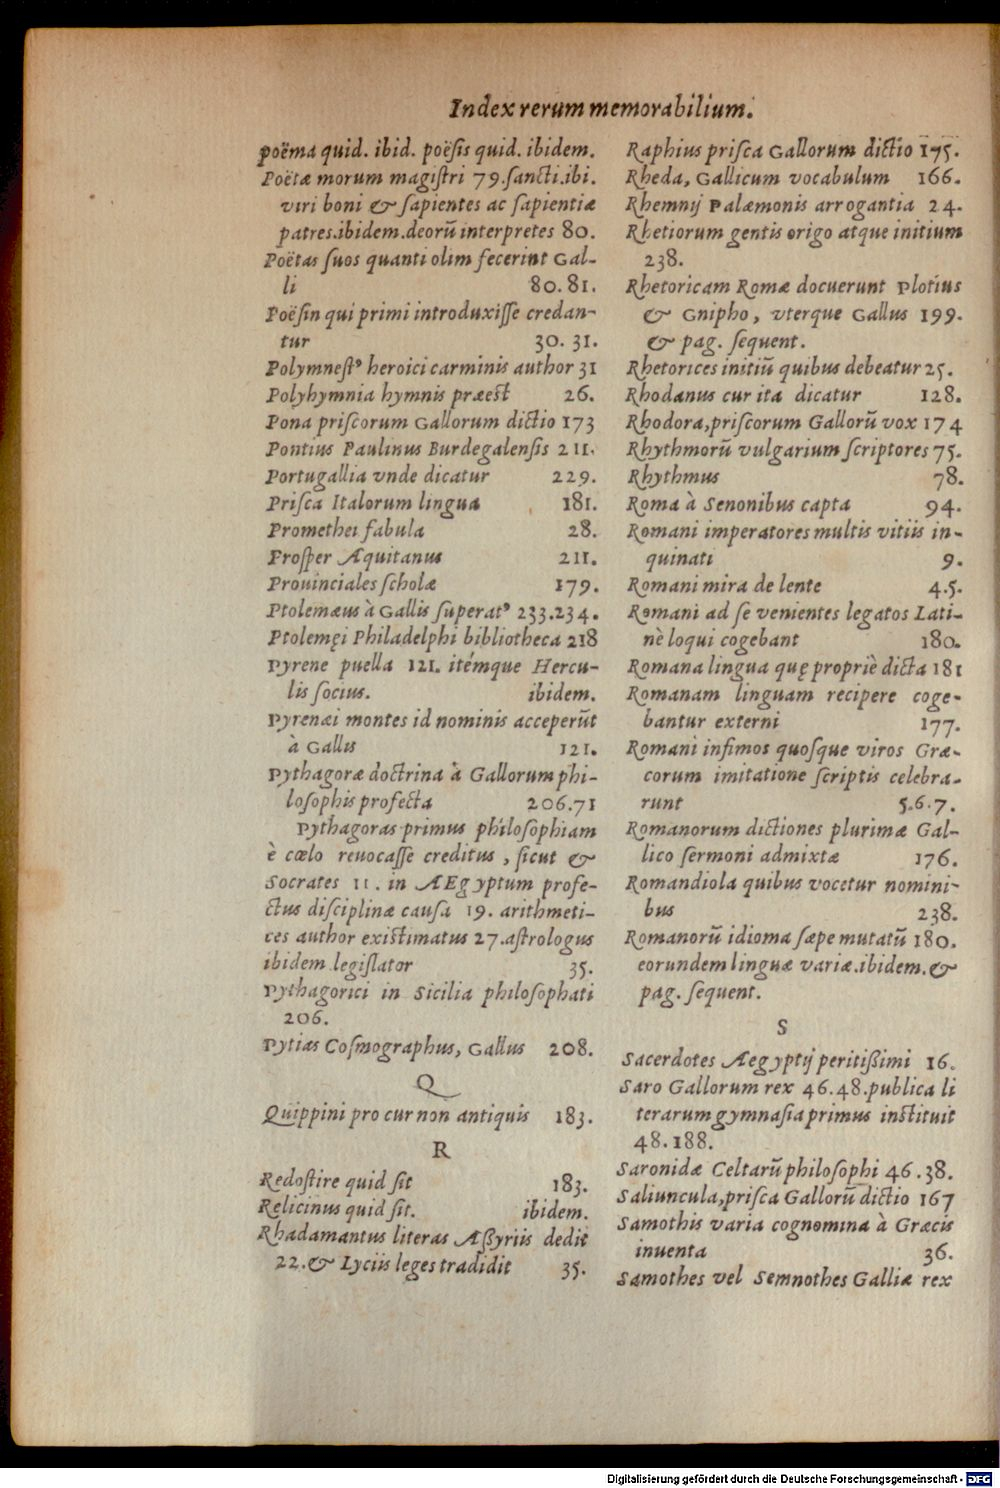 Index rerum memorabilium.
poëma quid. ibid. poësis quid. ibidem.
Poëtæ morum magiſtri 79. ſancti. ibi.
viri boni & ſapientes ac ſapientiæ
patres. ibidem. deorū interpretes 80.
Poëtas ſuos quanti olim fecerint Gal-
li 80. 81.
Poëſin qui primi introduxiſſe credan-
tur 30. 31.
Polymneſtꝰ heroici carminis author 31
Polyhymnia hymnis præeſt 26.
Pona priſcorum Gallorum dictio 173
Pontius Paulinus Burdegalenſis 211.
Portugallia vnde dicatur 229.
Priſca Italorum lingua 181.
Promethei fabula 28.
Proſper Æquitanus 211.
Prouinciales ſcholæ 179.
Ptolemæus à Gallis ſuperatꝰ 233.234.
Ptolemęi Philadelphi bibliotheca 218
Pyrene puella 121. itémque Hercu-
lis ſocius. ibidem.
Pyrenæi montes id nominis acceperūt
à Gallis 121.
Pythagoræ doctrina à Gallorum phi-
loſophis profecta 206.71
Pythagoras primus philoſophiam
è cœlo reuocaſſe creditus, ſicut &
Socrates 11. in AEgyptum profe-
ctus diſciplinæ cauſa 19. arithmeti-
ces author exiſtimatus 27. aſtrologus
ibidem legiſlator 35.
Pythagorici in Sicilia philoſophati
206.
Pytias Coſmographus, Gallus 208.
Q
Quippini pro cur non antiquis 183.
R
Redoſtire quid ſit 183.
Relicinus quid ſit. ibidem.
Rhadamantus literas Aßyriis dedit
22. & Lyciis leges tradidit 35.
Raphius priſca Gallorum dictio 175.
Rheda, Gallicum vocabulum 166.
Rhemnij Palæmonis arrogantia 24.
Rhetiorum gentis origo atque initium
238.
Rhetoricam Romæ docuerunt Plotius
& Gnipho, vterque Gallus 199.
& pag. ſequent.
Rhetorices initiū quibus debeatur 25.
Rhodanus cur ita dicatur 128.
Rhodora, priſcorum Gallorū vox 174
Rhythmorū vulgarium ſcriptores 75.
Rhythmus 78.
Roma à Senonibus capta 94.
Romani imperatores multis vitiis in-
quinati 9.
Romani mira de lente 4.5.
Romani ad ſe venientes legatos Lati-
nè loqui cogebant 180.
Romana lingua quę propriè dicta 181
Romanam linguam recipere coge-
bantur externi 177.
Romani infimos quoſque viros Græ-
corum imitatione ſcriptis celebra-
runt 5.6.7.
Romanorum dictiones plurimæ Gal-
lico ſermoni admixtæ 176.
Romandiola quibus vocetur nomini-
bus 238.
Romanorū idioma ſæpe mutatū 180.
eorundem linguæ variæ. ibidem. &
pag. ſequent.
S
Sacerdotes Ægyptij peritißimi 16.
Saro Gallorum rex 46.48. publica li
terarum gymnaſia primus inſtituit
48.188.
Saronidæ Celtarū philoſophi 46.38.
Saliuncula, priſca Gallorū dictio 167
Samothis varia cognomina à Græcis
inuenta 36.
Samothes vel Semnothes Galliæ rex
Digitalisierung gefördert durch die Deutsche Forschungsgemeinschaft - DFG